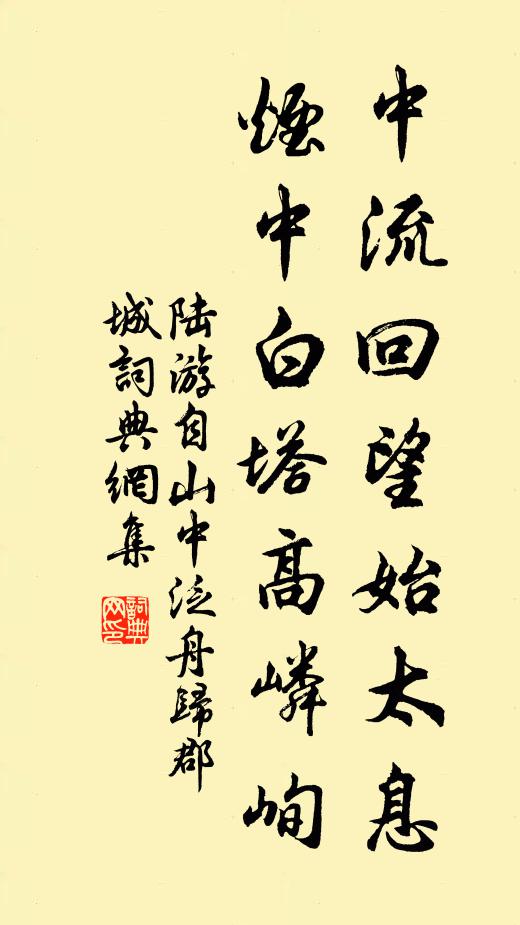 中流回望始太息
煙中白塔高嶙峋
陆游自山中泛舟歸郡
城詞典網集
詞典网印